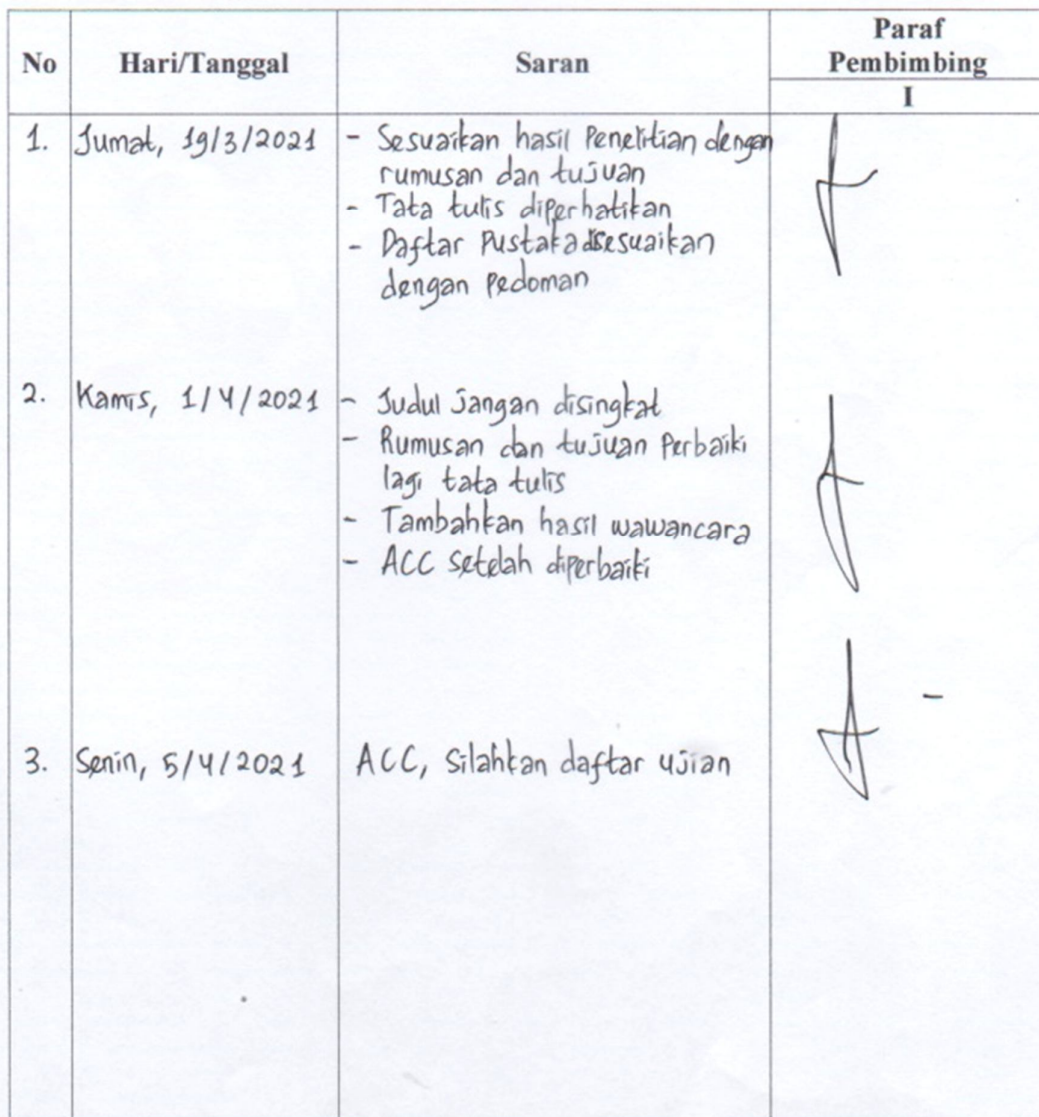 No Hari/Tanggal Saran Paraf Pembimbing
I
1. Jumat, 19/3/2021 - Sesuaikan hasil Penelitian dengan
rumusan dan tujuan
- Tata tulis diperhatikan
- Daftar Pustaka disesuaikan
dengan Pedoman
2. Kamis, 1/4/2021 - Judul jangan disingkat
- Rumusan dan tujuan Perbaiki
lagi tata tulis
- Tambahkan hasil wawancara
- ACC setelah diperbaiki
3. Senin, 5/4/2021 ACC, Silahkan daftar ujian